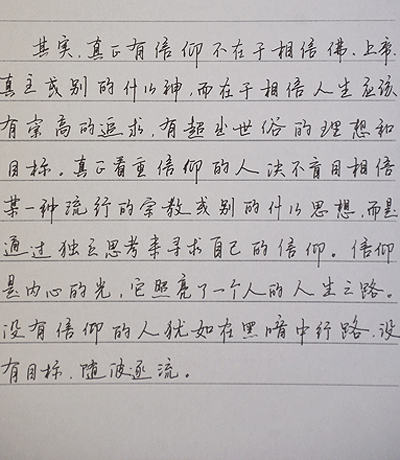 其实,真正有信仰不在于相信佛、上帝、
真主或别的什么神,而在于相信人生应该
有崇高的追求,有超出世俗的理想和
目标。真正看重信仰的人决不盲目相信
某一种流行的宗教或别的什么思想,而是
通过独立思考来寻求自己的信仰。信仰
是内心的光,它照亮了一个人的人生之路。
没有信仰的人犹如在黑暗中行路,没
有目标,随波逐流。